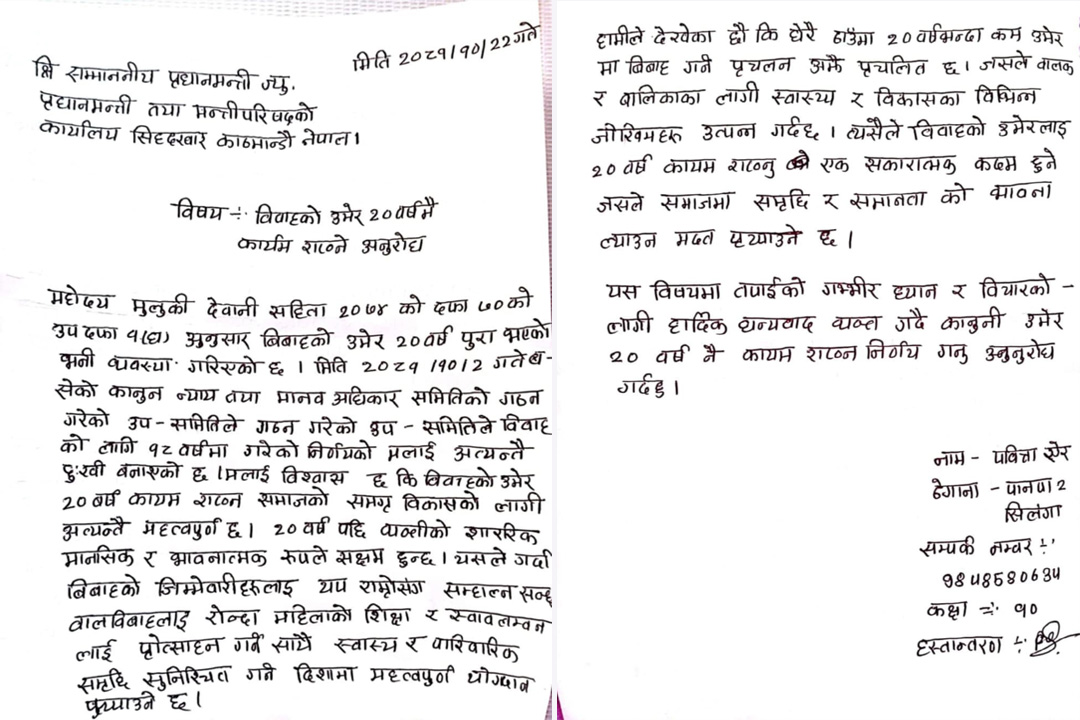 मिति २०८१/१०/22 गते
श्रि सम्माननीय प्रधानमन्त्री ज्यु.
प्रधानमन्ती तथा मन्त्तीपरिषदको
कार्यालय सिहदरवार काठमान्डौ नेपाल।
विषय ÷ विवाहको उमेर 20 वर्षमै
कार्यम राख्ने अनुरोध
महोदय मुलुकी देवानी सहिता २०७४ को दफा ७० को
उप दफा १(घ) अनुसार बिबाहको उमेर 20 वर्ष पुरा भएको
भनी व्यवस्था गरिएको छ । मिति २०८१/१०/2 गते ब-
सेको कानुन न्याय तथा मानव अधिकार समितिको गठन
गरेको उप-समितिले गठन गरेको उप-समितिले विवाह
को लागि १८ वर्षमा गरेको निर्णयको मलाई अत्यन्तै
दुःखी बनाएको छ । मलाई विश्वास छ कि बिवाहको उमेर
20 वर्ष कायम राख्न समाजको समग्र विकासको लागी
अत्यन्तै महत्वपुर्ण छ। 20 वर्ष पछि व्यक्तीको शाररिक
मानसिक र भावनात्मक रुपले सक्षम हुन्छ । यसले गर्दा
बिबाहको जिम्मेवारीहरुलाइ थप राम्रोसंग सम्हाल्न सक्छ
वालविबाहलाइ रोन्दा महिलाको शिक्षा र स्वावलम्वन
लाई प्रोत्साहन गर्ने साथै स्वास्थ्य र पारिवारिक
समृद्धि सुनिश्चित गर्ने दिशामा महत्वपुर्ण योगदान
पुर्‍याउने छ।
हामीले देखेका छौ कि धेरै ठाउँमा 20 वर्षभन्दा कम उमेर
मा बिबाह गर्ने प्रचलन अझै प्रचलित छ। जसले वालक
र बालिकाका लागी स्वास्थ्य र विकासका विभिन्न
जोखिमहरु उत्पन्न गर्दछ । त्यसैले विवाहको उमेरलाइ
20 वर्ष कायम राख्नु एक सकारात्मक कदम हुने
जसले समाजमा समृद्धि र समानता को भावना
ल्याउन मदत पुर्‍याउने छ।
यस विषयमा तपाईको गम्भीर ध्यान र विचारको -
लागी हार्दिक धन्यवाद व्यक्त गर्दै कानुनी उमेर
20 वर्ष नै कायम राख्न निर्णय गर्नु अनुनुरोध
गर्दछु।
नाम - पवित्रा सेर
ठेगाना - पानपा 2
सिलंगा
सम्पर्क नम्वर ÷
9848580634
कक्षा ÷ १०
हस्तान्तरण ÷